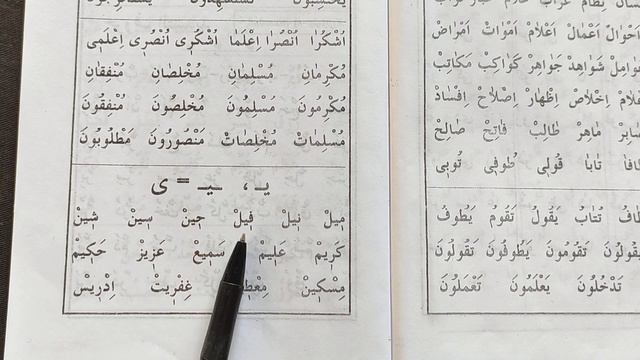 اُشْكُرَا اُنْصُرَا اِعْلَمَا اُشْكُرٖى اُنْصُرٖى اِعْلَمٖى
مُكْرِمَانِ مُسْلِمَانِ مُخْلِصَانِ مُنْفِقَانِ
مُكْرِمُونَ مُسْلِمُونَ مُخْلِصُونَ مُنْفِقُونَ
مُسْلِمَاتٌ مُخْلِصَاتٌ مَنْصُورُونَ مَطْلُوبُونَ
يـ ، ـيـ = ى
مٖيلْ نٖيلْ فٖيلْ حٖينْ سٖينْ شٖينْ
كَرٖيمْ عَلٖيمْ سَمٖيعْ عَزٖيزْ حَكٖيمْ
مِسْكٖينْ عِفْرٖيتْ اِدْرٖيسْ
اَحْوَالْ اَعْمَالْ اَعْلَامْ اَمْوَاتْ اَمْرَاضْ
شَوَاهِدْ جَوَاهِرْ كَوَاكِبْ مَكَاتِبْ
اِخْلَاصْ اِظْهَارْ اِصْلَاحْ اِفْسَادْ
مَاهِرْ طَالِبْ فَاتِحْ صَالِحْ
تَابَا قُولٖى طُوفٖى تُوبٖى
تُتَابُ يَقُولُ تَقُومُ يَطُوفُ
تَقُومُونَ يَطُوفُونَ تَقُولُونَ
تَدْخُلُونَ يَعْلَمُونَ تَعْمَلُونَ